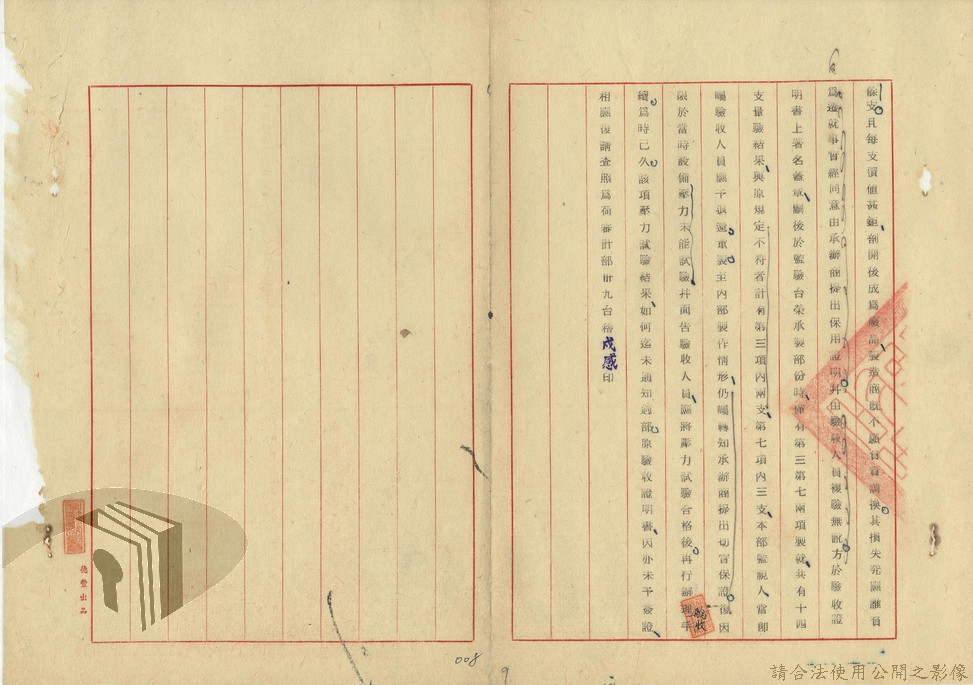 餘支且每支價值甚鉅剖開後成為廢品製造商既不願負責調換其損失究應誰負
為遷就事實經同意由承辦商提出保用證明幷由驗收人員複驗無訛方於驗收證
明書上署名蓋章嗣後於監驗台榮承製部份時僅有第三第七兩項製就共有十四
支量驗結果與原規定不符者計有第三項內兩支第七項內三支本部監視人當即
囑驗收人員應予退還重製至內部製作情形仍囑轉知承辦商提出切實保證復因
限於當時設備壓力未能試驗幷面告驗收人員應將壓力試驗合格後再行辦理手
續為時已久該項壓力試驗結果如何迄未通知過部原驗收證明書因亦未予簽證
相應復請查照為荷審計部卅九台稽戍感印
德豐出品
008
9
請合法使用公開之影像